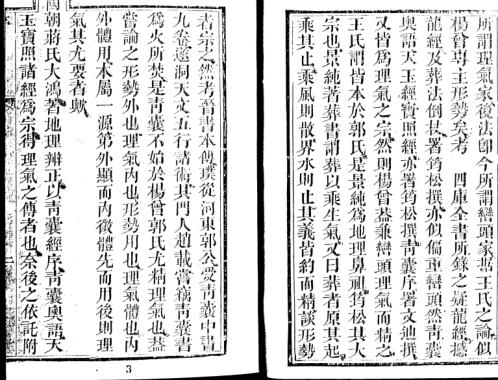 所謂理氣家後法卽今所謂巒頭家點王氏之論似
楊曾專主形勢矣考 四庫全書所錄之疑龍經撼
龍經及葬法倒杖署筠松撰亦似偏重巒頭然青囊
奧語天玉經寶照經亦署筠松撰青囊序署文迪撰
又皆爲理氣之宗然則楊曾葢兼巒頭理氣而精之
王氏謂皆本於郭氏是景純爲地理鼻祖筠松其大
宗也景純著葬書謂葬以乘生氣又曰葬者原其起
乘其止乘風則散界水則止其義皆約而精談形勢
者宗之然考晉書本傳璞從河東郭公受青囊中書
九卷遂洞天文五行諸術其門人趙載嘗竊青囊書
爲火所焚是青囊不始於楊曾郭氏尤精理氣也葢
嘗論之形勢外也理氣內也形勢用也理氣體也內
外體用本屬一源第外顯而內微體先而用後則理
氣其尤要者歟
國朝蔣氏大鴻著地理辨正以青囊經序青囊奧語天
玉寶照諸經爲宗得理氣之傳者也余後之依託附
3